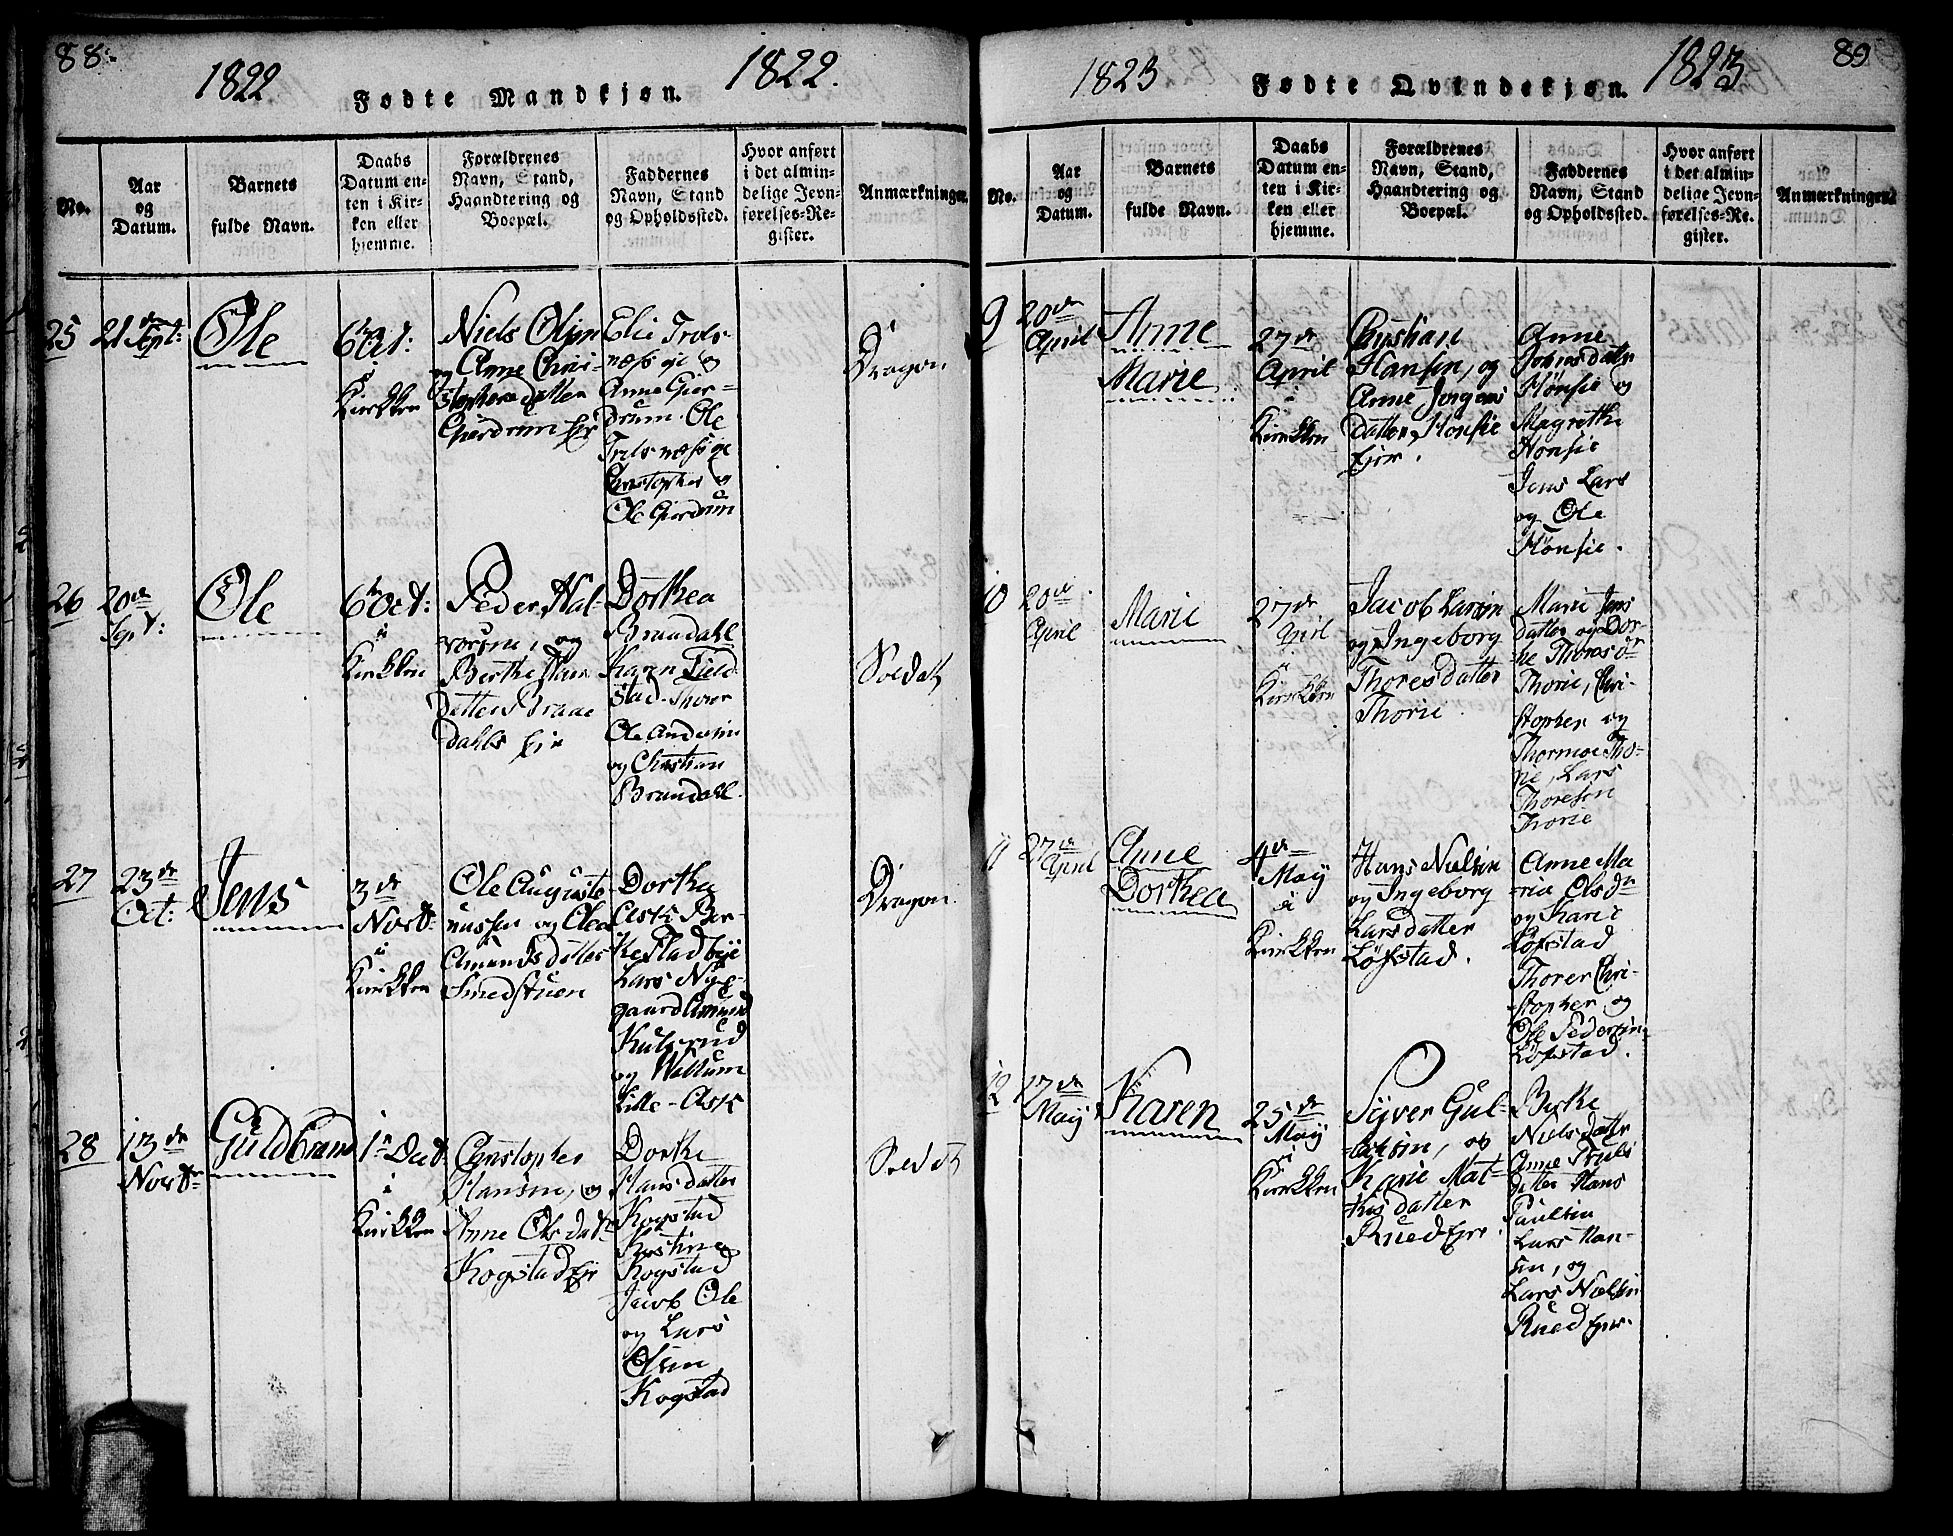 88.
1822
Fødte Mandkjøn.
1822.
No.
Aar
og
Datum.
Barnets
fulde Navn.
Daabs
Datum en-
ten i Kir-
ken eller
hjemme.
Forældrenes
Navn, Stand,
Haandtering og
Boepæl.
Faddernes
Navn, Stand
og Opholdssted.
Hvor anført
i det almin-
delige Jevn-
førelses-Re-
gister.
Anmærkninger.
25
21 Sept:
Ole
6 Oct:
i
Kirkken
Niels Olsen
og Anne Chri-
stophersdatter
Gierdrum Eje
Elie Trøls-
næss eje og
Anne Gier-
drum. Ole
Trølsnæss eje
Christopher og
Ole Gierdrum
Dragon
26
20de
Sept:
Ole
6 Oct:
i
Kirkken
Peder Hal-
vorsen, og
Berthe
Datter Braae
dahls Eje
Dorthea
Braadahl
Karen Field
stad Thorer
Ole Andersen
og Christian
Braadahl.
Soldat
27
23de
Oct:
Jens
3de
Novb:
i
Kirkken
Ole Auguste
nussen og Olea
Amundsdatter
Smedstuen
Dorthea
Ask Ber-
the Stadbye
Lars Nye
gaard Amund
Kulsrud
og
Lille-Ask
Dragon.
28
13de
Novbr
Guldbrand
1te Decb
i
Kirkken
Christopher
Hansen, og
Anne Olsdatr
Kogstad Eje
Dorthe
Hansdatter
Kogstad
Kirstine
Kogstad
Jacob Ole
og Lars
Olsen
Kogstad
Soldat
89
1823
Fødte Qvindekjøn.
1823
No.
Aar
og
Datum.
Barnets
fulde Navn.
Daabs
Datum en-
ten i Kir-
ken eller
hjemme.
Forældrenes
Navn, Stand,
Haandtering og
Boepæl.
Faddernes
Navn, Stand
og Opholdssted.
Hvor anført
i det almin-
delige Jevn-
førelses-Re-
gister.
Anmærkninger.
9
20de
April
Anne
Marie
27de
April
i
Kirkken
Christian
Hansen, og
Anne Jørgens
datter, Hønsie
Ejer.
Anne
Johnsdattr
Hønsie og
Magrethe
Hønsie
Jens Lars
og Ole
Hønsie.
10
20de
April
Marie
27de
April
i
Kirkken
Jacob Larsen
og Ingeborg
Thoresdatter
Thorie
Marie Jens
datter og Dor-
the Thorsdr
Thorie, Chri-
stopher og
Thormoe Tho-
rie, Lars
Thoresen
Thorie
11
27de
April
Anne
Dorthea
4de
May
i
Kirkken
Hans Nielsen
og Ingeborg
Larsdatter
Løfstad.
Anne Ma
ria Olsdr
og Karie
Løfstad
Thorer Chri-
stopher og
Ole Pedersen
Løfstad.
12
17de
May
Karen
25de
May
i
Kirkken
Syver Gul-
brsen, og
Karie Mat-
hisdatter
Rued Ejer.
Birthe
Nielsdattr
Anne Pouls
datter Hans
Paulsen
Lars Han-
sen, og
Lars Nielsen
Rued Ejer.